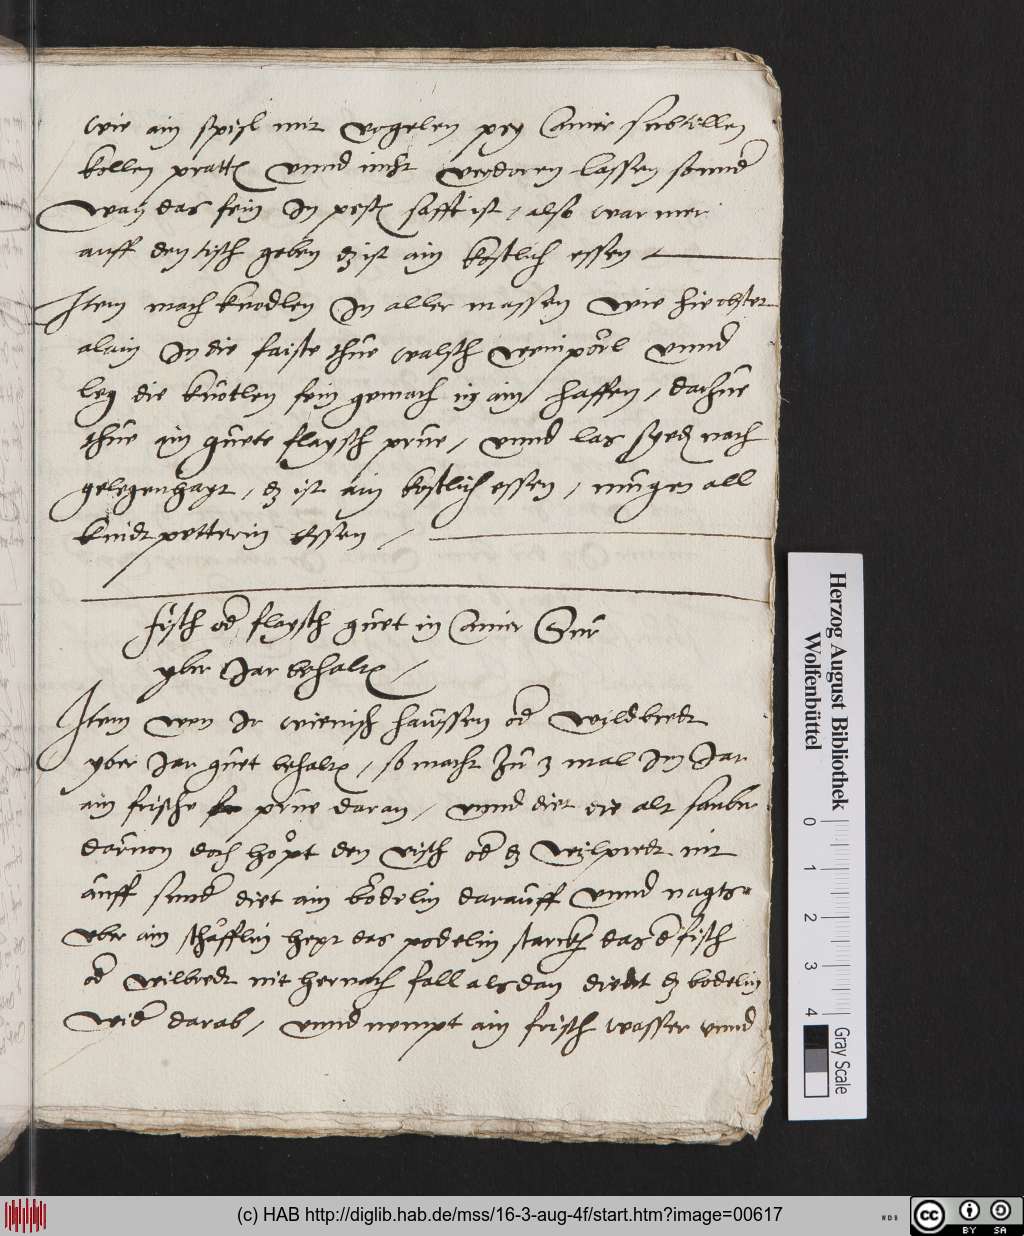 wie ain spisl mit vogelen pey ainer subtillen
kollen pratten vnnd nicht verdoren lassen sonnder
wan das fein in pesten safft ist / also warmer
auff den tisch geben dz ist ain kostlich essen
Item mach knodlen in aller massen wie hie obsteet
alain in die faiste thue walsch weinpörl vnnd
leg die knötlen fein gemach in ain haffen / darzue
thue ain guete flaysch prue / vnnd las syeden nach
gelegenhayt / dz ist ain kostlich essen / mugen all
kindtpetterin essen /
fisch oder flaysch guet in ainer Sur
yber Jar behalten /
Item wen Ir wienisch haussen oder wildbredt
yber Jar guet behalten / so macht zu 3 mal Im Jar
ain frische prue daran / vnnd diet die alt sauber
daruon doch höpt den visch oder dz wylpredt nit
auff sunder diet ain bödelin darauff vnnd nagts
vber ain schäfflin hept das podelin starckh das der fisch
oder wilbredt nit hernach fall alsdan diedt dz bodelin
wider darab / vnnd nempt ain frisch wasser vnnd
Herzog August Bibliothek
Wolfenbüttel
0 1 2 3 4
Gray Scale
(c) HAB http://diglib.hab.de/mss/16-3-aug-4f/start.htm?image=00617
WDB
cc BY SA